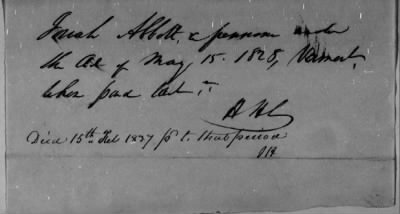 Abbott, a pensioner under
the Act of May 15. 1828, Vermont,
when paid last :-
Died 15th Feb 1837 pd to that period